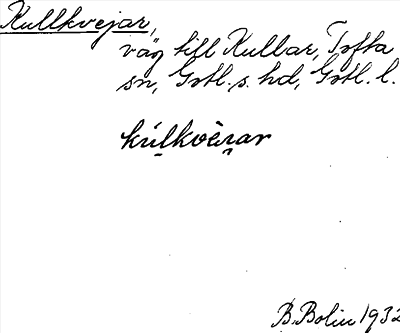 Kullkvejar,
väg till Kullar, Tofta
sn, Gotl. s. hd, Gotl. l.
kúlkvèrar
B. Bolin 1932